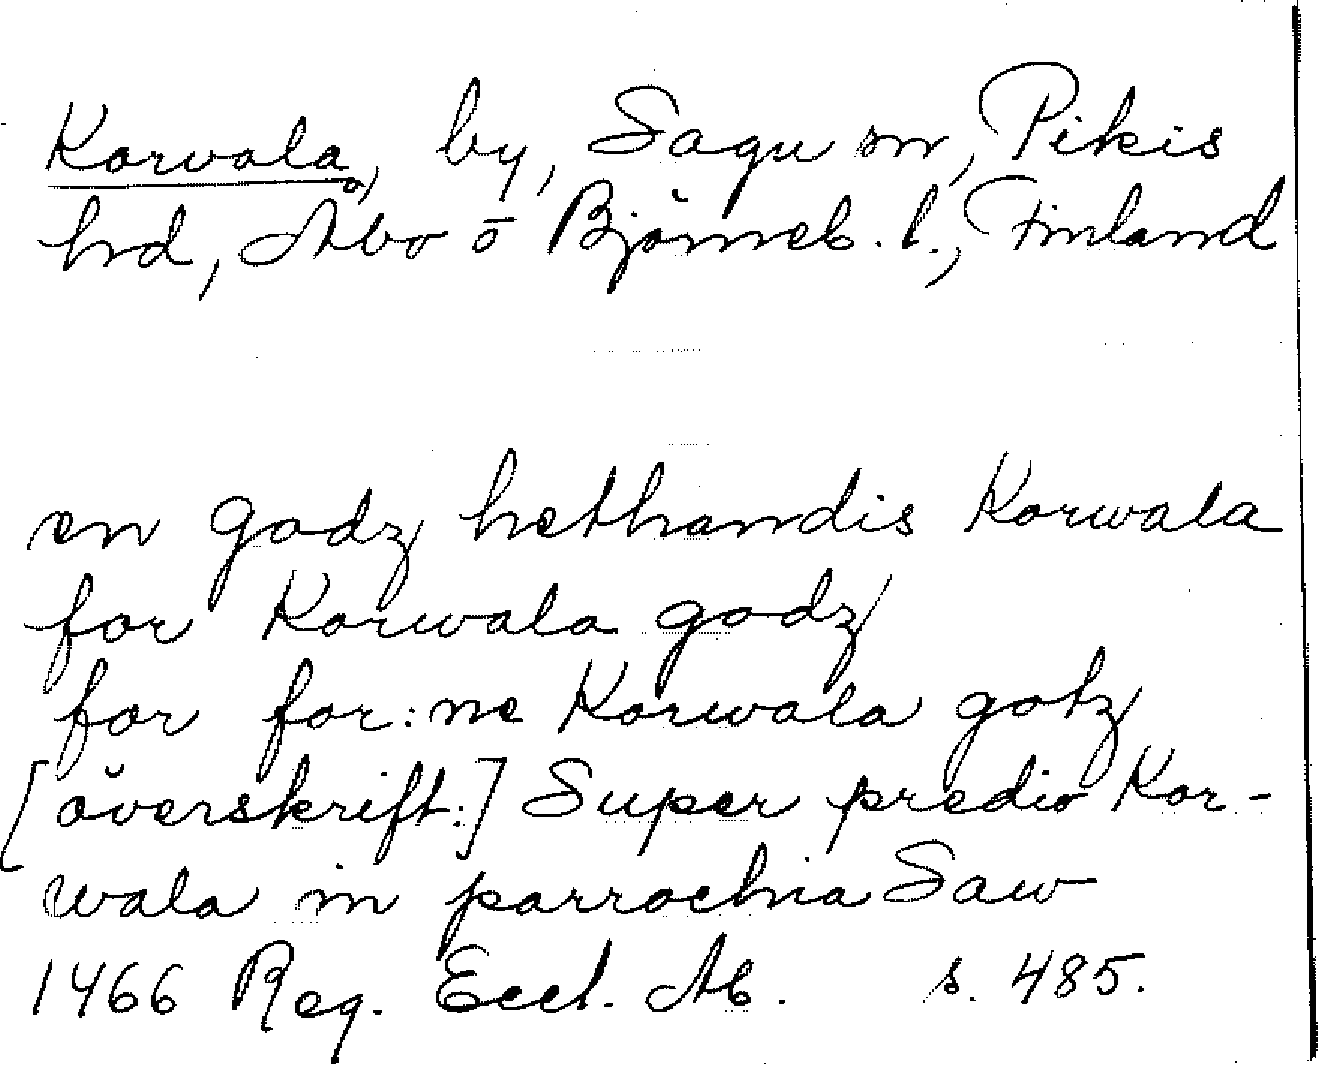 Korvala, by, Sagu sn, Pikis
hd, Åbo o Björneb. l., Finland
en godz hethandis Korwala
for Korwala godz
for for:ne Korwala gotz
[överskrift:] Super predio Kor-
wala in parrochia Saw
1466 Reg. Eccl. Ab. s. 485.